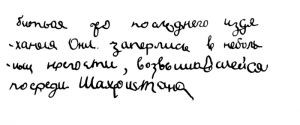 биться до последнего изды
-хания Они. заперлись в неболь
-шой крепости, возвышавшейся
посреди Шахристана